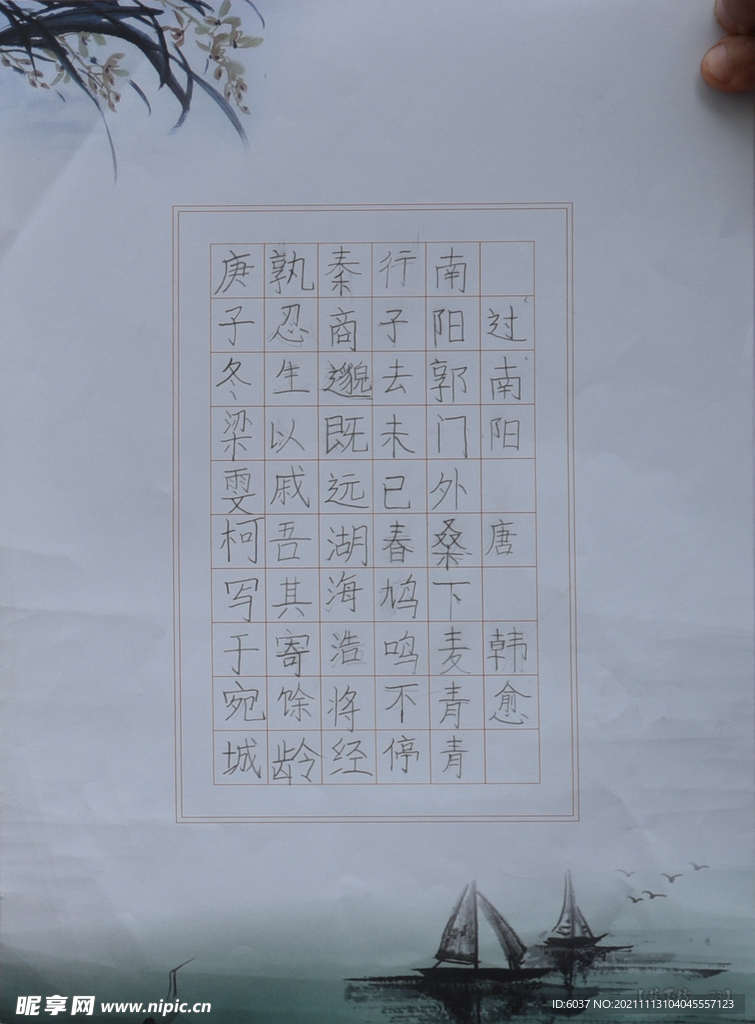 过南阳 唐 韩愈
南阳郭门外桑下麦青青
行子去未已春鸠鸣不停
秦商邈既远湖海浩将经
孰忍生以戚吾其寄馀龄
庚子冬梁雯柯写于宛城
昵享网 www.nipic.cn
ID:6037 NO:20211113104045557123